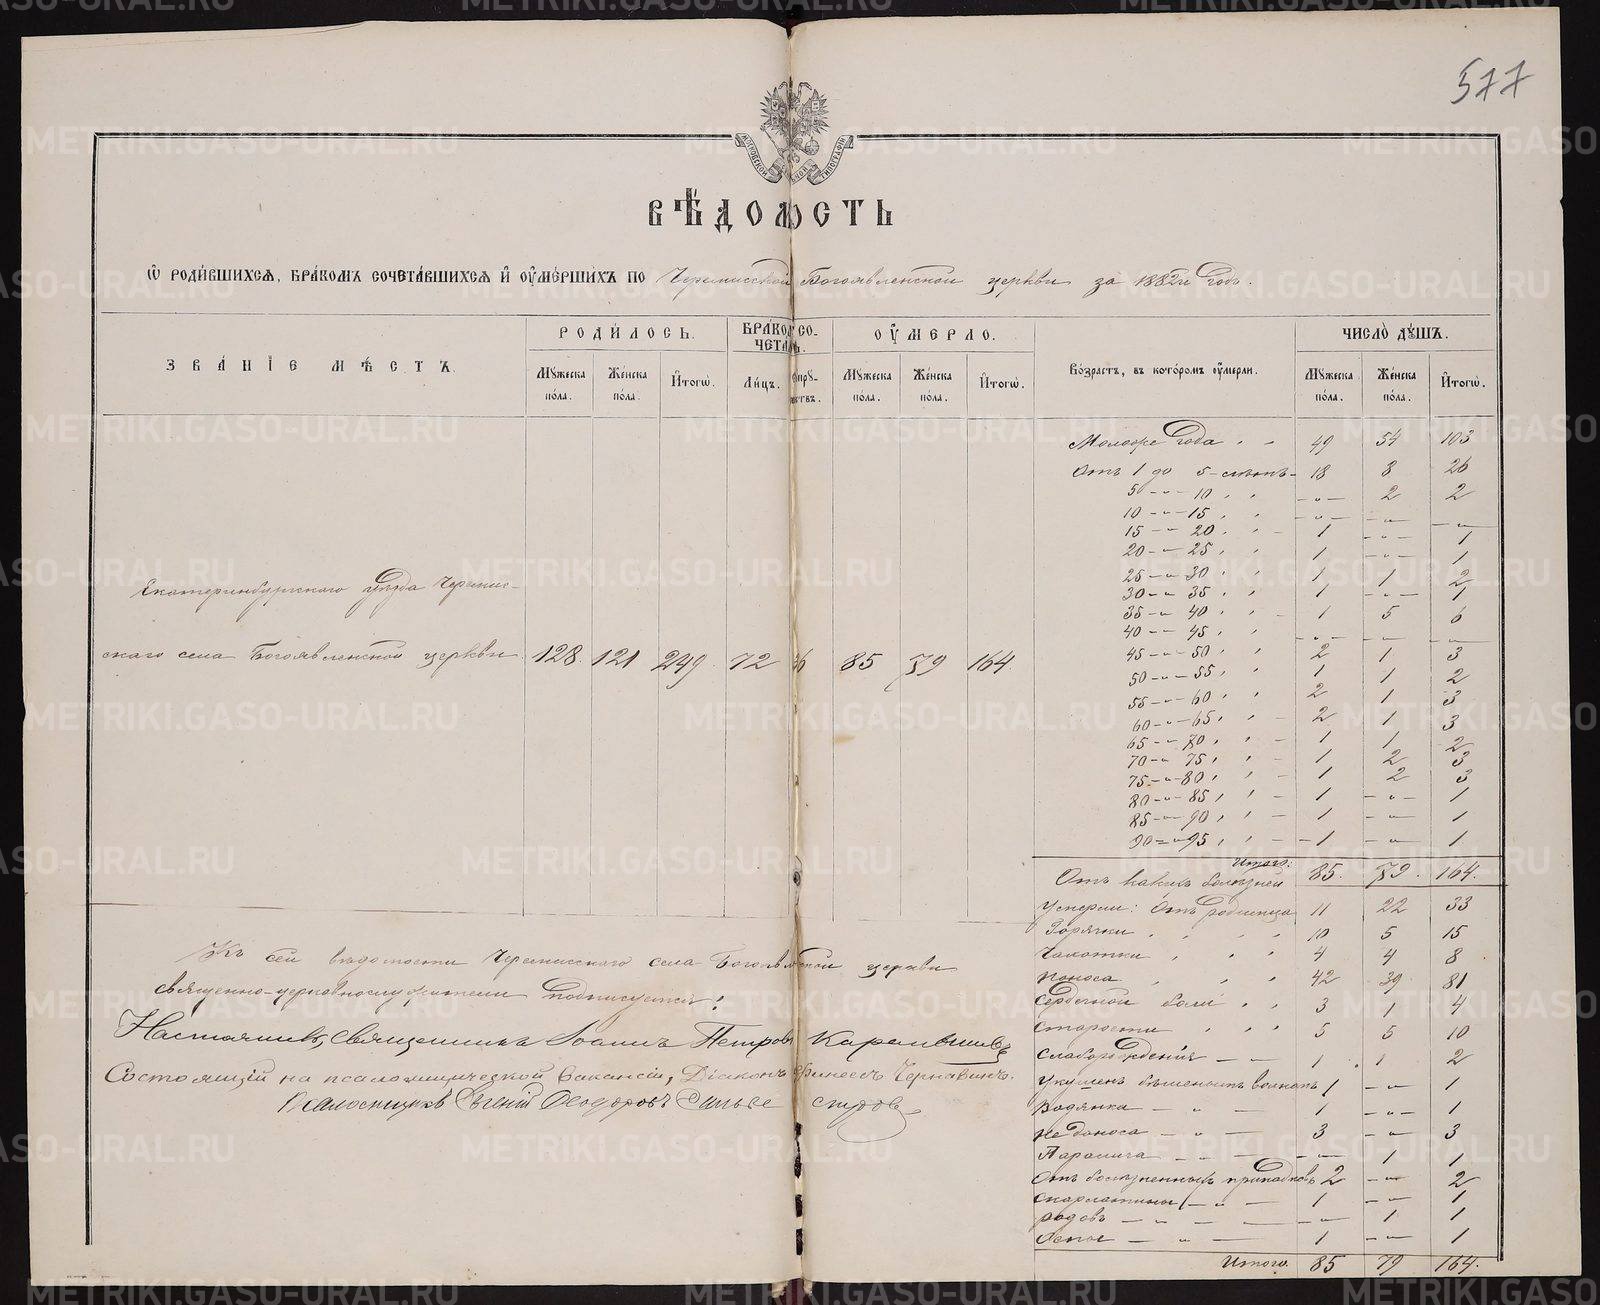 577
МОСКОВСКОЙ СѴНОД. ТИПОГРАФІИ
ВѢДОМОСТЬ
Ѡ РОДИВШИХСЯ, БРАКОМЪ СОЧЕТАВШИХСЯ И ОУМЕРШИХЪ ПО Черемисской Богоявленской церкви за 1882й годъ.
ЗВАНІЕ МѢСТЪ.
РОДИЛОСЬ.
БРАКОМ СОЧЕТАЛ.
ОУМЕРЛО.
Возрастъ, въ которомъ оумерли.
ЧИСЛО ДУШЪ.
Мужеска пола. Женска пола. Итогѡ. Лицъ. Мужеска пола. Женска пола. Итогѡ. Мужеска пола. Женска пола. Итогѡ.
Екатеринбургского уѣзда Черемис-
скаго села Богоявленской церкви 128 121 249 72 36 85 79 164
Моложе года 49 54 103
Отъ 1 до 5 лѣтъ 18 8 26
5 -"- 10 -"- 2 2
10 -"- 15 -"- -"- -"-
15 -"- 20 1 -"- 1
20 -"- 25 1 -"- 1
25 -"- 30 1 1 2
30 -"- 35 1 -"- 1
35 -"- 40 1 5 6
40 -"- 45 -"- -"- -"-
45 -"- 50 2 1 3
50 -"- 55 1 1 2
55 -"- 60 2 1 3
60 -"- 65 2 1 3
65 -"- 70 1 1 2
70 -"- 75 1 2 3
75 -"- 80 1 2 3
80 -"- 85 1 -"- 1
85 -"- 90 1 -"- 1
90 -"- 95 1 -"- 1
Итого: 85. 79. 164.
Отъ какихъ болѣзней
умерли: Отъ родимца 11 22 33
Горячки 10 5 15
Чахотки 4 4 8
Поноса 42 39 81
Сердечной боли 3 1 4
Старости 5 5 10
Слаборожденія 1 1 2
Укушенъ бѣшенымъ волкомъ 1 -"- 1
Водянка 1 -"- 1
Не доноса 3 -"- 3
Паралича -"- 1 1
Отъ болѣзненныхъ припадковъ 2 -"- 2
Скарлатины 1 -"- 1
Родовъ -"- 1 1
Оспы 1 -"- 1
Итого 85 79 164.
Къ сей вѣдомости Черемисскаго села Богоявленской церкви
священно-церковнослужители подписуемся:
Настоятель, Священникъ Іоаннъ Петровъ
Состоящій на псаломщической вакансіи, Діаконъ Финеесъ Чернавинъ.
Псаломщикъ Евгеній Ѳеодоровъ Сильвестровъ
METRIKI.GASO-URAL.RU